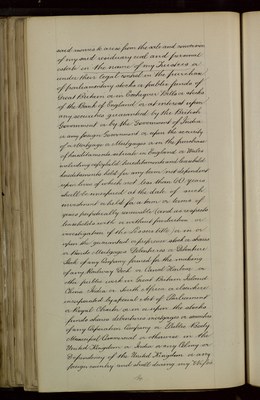 and monies to arise from the sale and conversion
of my said residuary real and personal
estate in the names of my Trustees or
under their legal control in the purchase
of parliamentary stocks or public funds of
Great Britain or in Exchequer Bills or stocks
of the Bank of England or at interest upon
any securities guaranteed by the British
Government or by the Government of India
or any foreign Government or upon the security
of a Mortgage or Mortgages or in the purchase
of hereditaments situate in England or Wales
including copyhold hereditaments and leasehold
hereditaments held for any term not dependent
upon lives of which not less than 60 years
shall be unexpired at the date of such
investment or held for a term or terms of
years perpetually renewable (and as respects
leaseholds with or without production or
investigation of the Lessors title) or in or
upon the guaranteed or preference stock or shares
or Bonds Mortgages Debentures or Debenture
Stock of any Company formed for the making
of any Railway Dock or Canal Harbour or
other public work in Great Britain Ireland
China India or South Africa or elsewhere
incorporated by special Act of Parliament
or Royal Charter or in or upon the stocks
funds shares debentures mortgages or securities
of any Corporation Company or Public Body
Municipal Commercial or otherwise in the
United Kingdom or India or any Colony or
Dependency of the United Kingdom or any
foreign country and shall during my Wife's